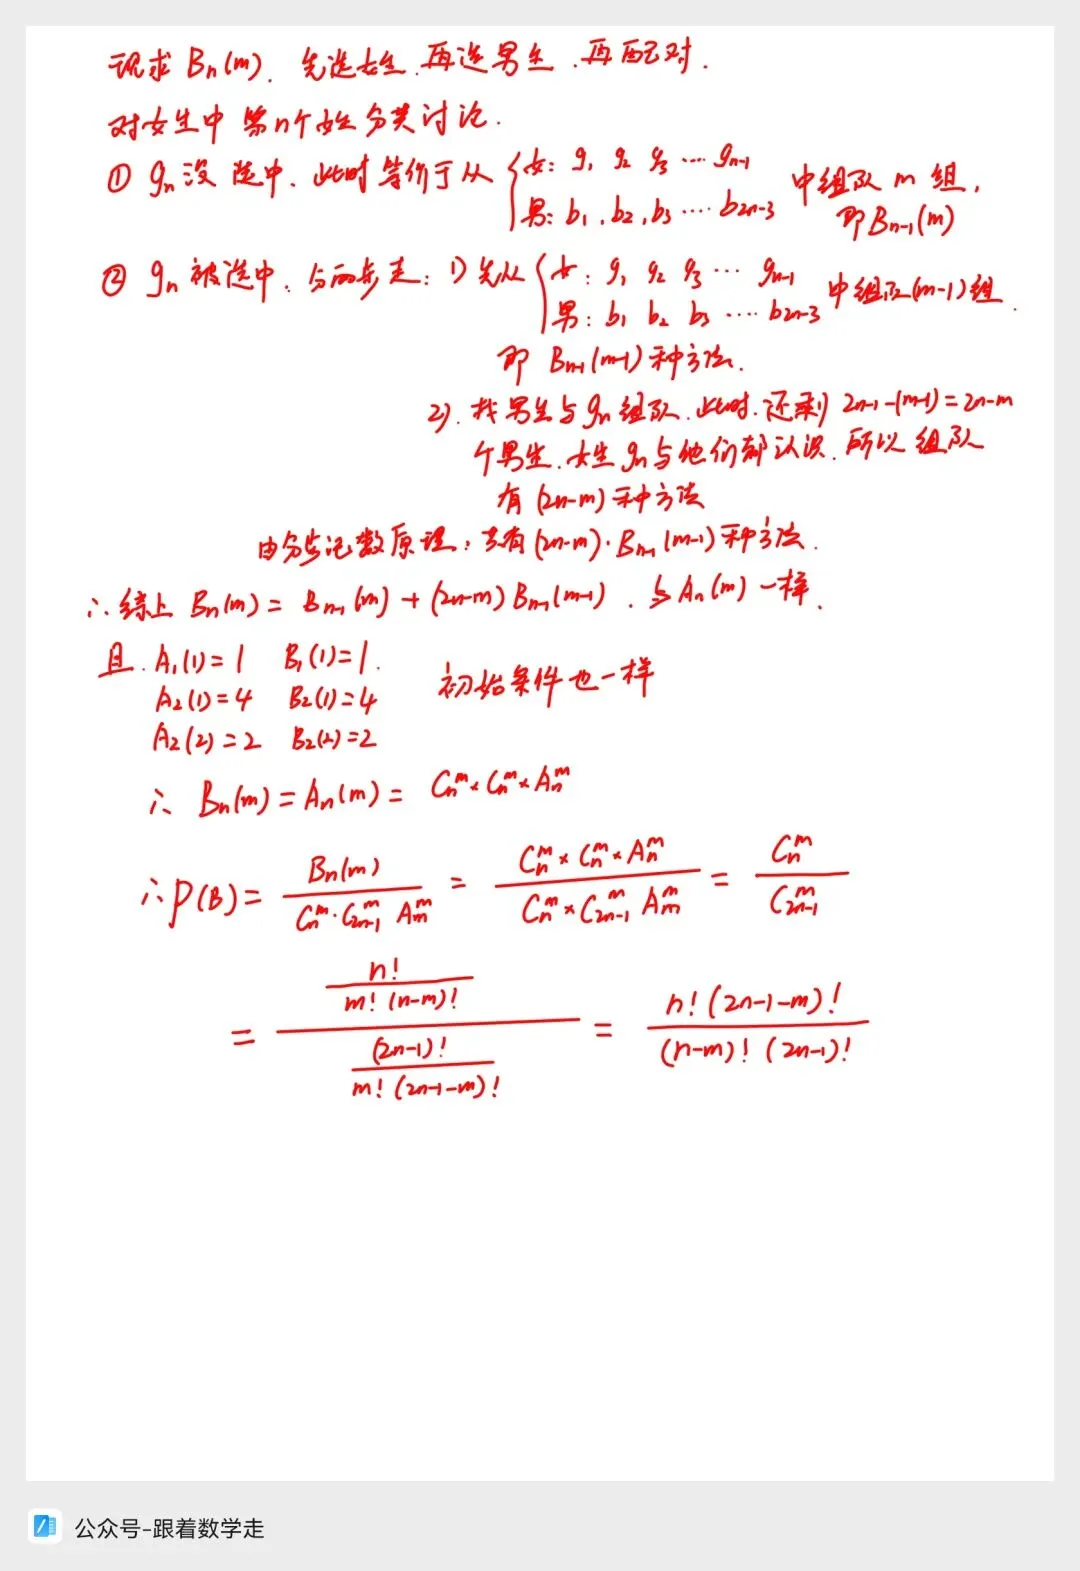 现求 Bn(m). 先选女生.再选男生.再配对.
对女生中第n个女生分类讨论.
① gn没选中. 此时等价于从 { 女: g1 g2 g3 … gn-1 中组队 m 组,
男: b1, b2, b3 …. b2n-3 即Bn-1(m)
② gn被选中. 分两步走: 1) 先从 { 女: g1 g2 g3 … gn-1 中组队(m-1)组.
男: b1 b2 b3 …. b2n-3
即 Bn-1(m-1)种方法.
2). 找男生与gn组队. 此时.还剩 2n-1-(m-1)=2n-m
个男生.女生gn与他们都认识.所以组队
有(2n-m)种方法
由分步记数原理: 共有(2n-m)·Bn-1(m-1)种方法.
∴综上 Bn(m) = Bn-1(m) + (2n-m)Bn-1(m-1). 与An(m)一样.
且. A1(1)=1 B1(1)=1.
A2(1)=4 B2(1)=4 初始条件也一样
A2(2)=2 B2(2)=2
∴ Bn(m) = An(m) = Cn^m × Cn^m × An^m
∴P(B) = Bn(m) / (Cn^m · C2n-1^m Am^m) = (Cn^m × Cn^m × An^m) / (Cn^m × C2n-1^m Am^m) = Cn^m / C2n-1^m
= (n! / (m!(n-m)!)) / ((2n-1)! / (m!(2n-1-m)!)) = n!(2n-1-m)! / ((n-m)!(2n-1)!)
公众号-跟着数学走